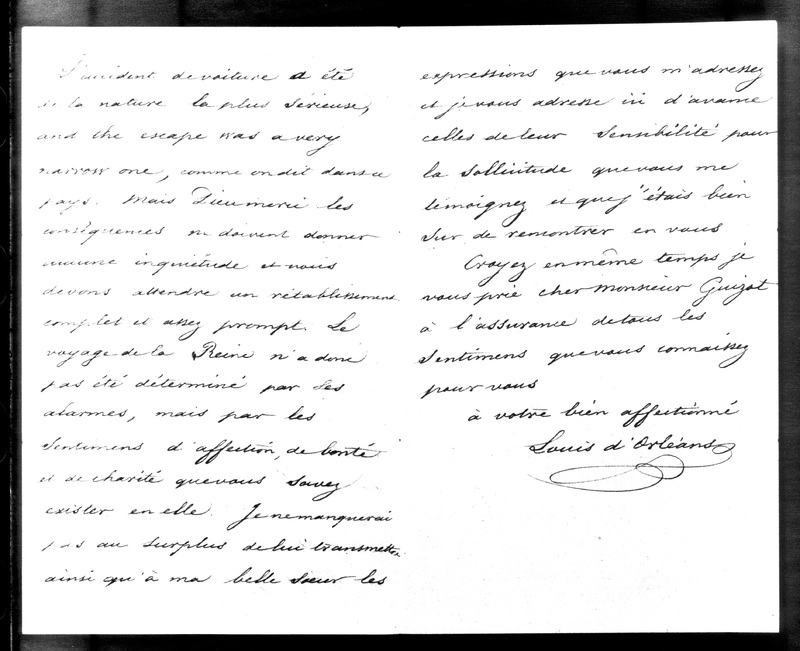 L'accident de voiture a été
de la nature la plus sérieuse,
and the escape was a very
narrow one, comme on dit dans ce
pays. Mais Dieu merci les
conséquences ne doivent donner
aucune inquiétude et nous
devons attendre un rétablissement
complet et assez prompt. Le
voyage de la Reine n'a donc
pas été déterminé par ses
alarmes, mais par les
sentimens d'affection, de bonté
et de charité que vous savez
exister en elle. Je ne manquerai
pas au surplus de lui transmettre
ainsi qu'à ma belle sœur les
expressions que vous m'adressez
et je vous adresse ici d'avance
celles de leur sensibilité pour
la sollicitude que vous me
témoignez et que j'étais bien
sur de rencontrer en vous
Croyez en même temps je
vous prie cher Monsieur Guizot
à l'assurance de tous les
sentimens que vous connaissez
pour vous
à votre bien affectionné
Louis d'Orléans